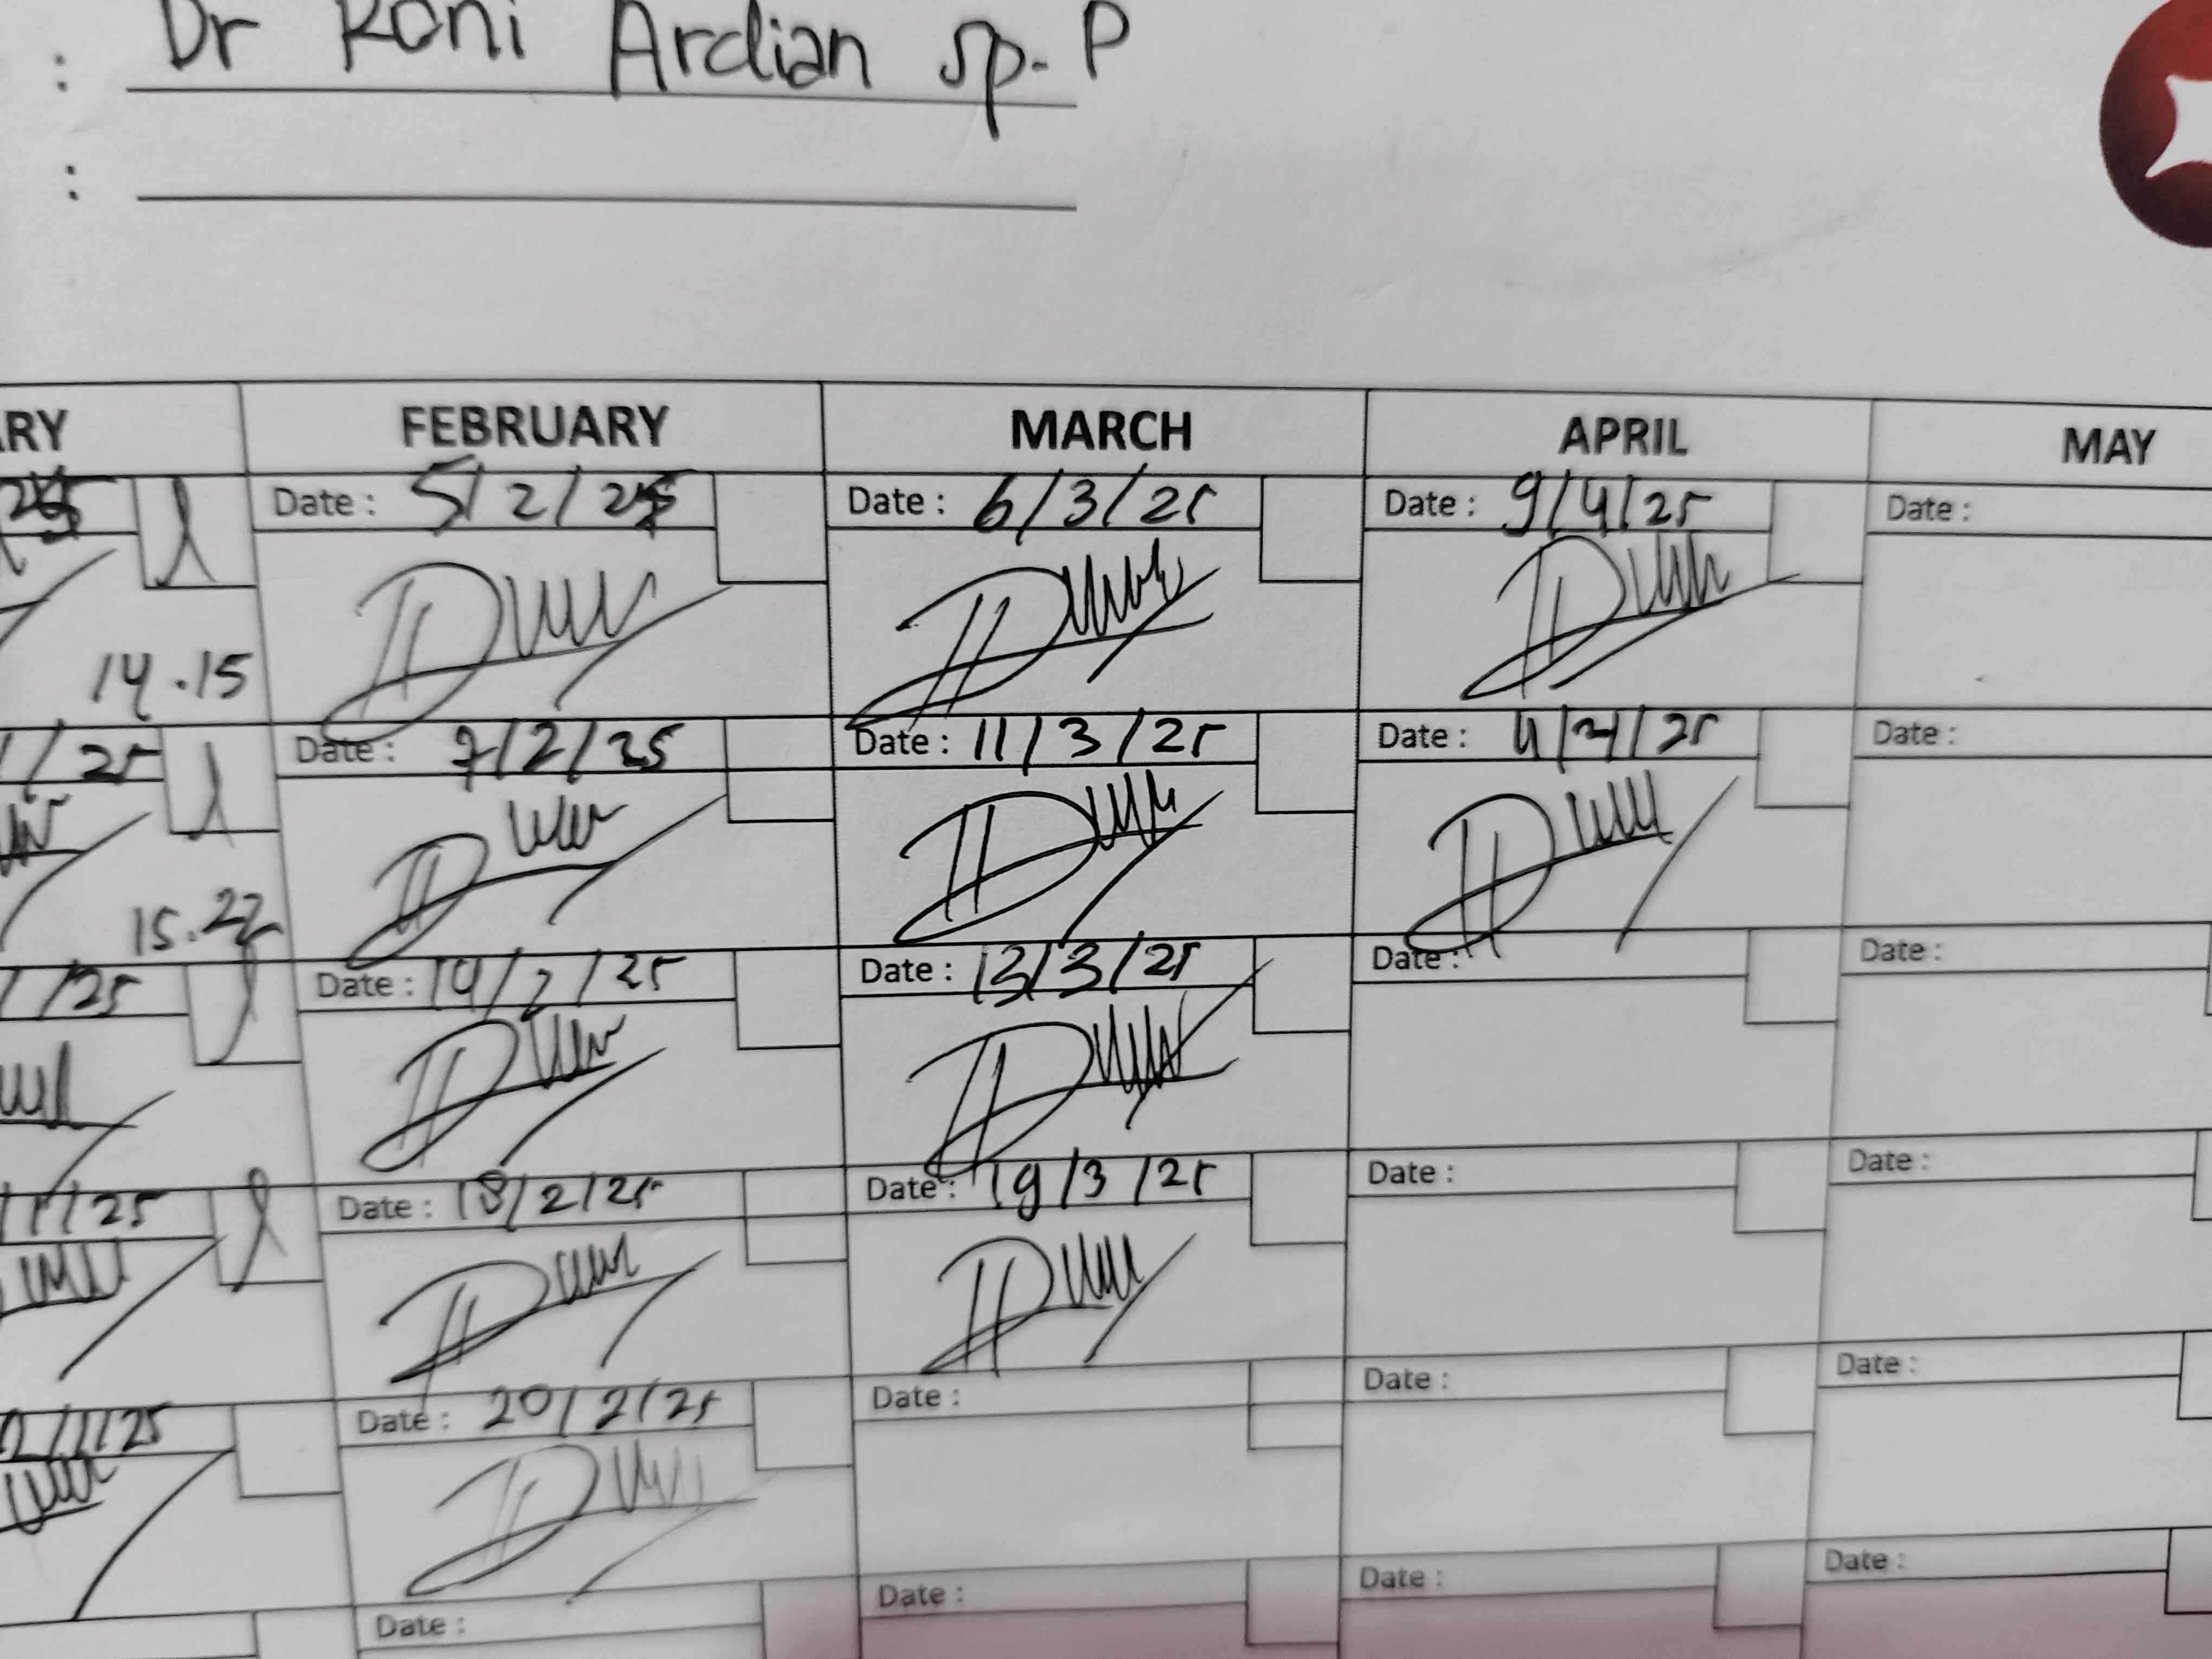 : Dr Roni Ardian sp. P
:
FEBRUARY MARCH APRIL MAY
Date : 5/2/25 Date : 6/3/25 Date : 9/4/25 Date :
14.15
/25 Date : 7/2/25 Date : 11/3/25 Date : /25 Date :
15.22
/25 Date : 14/2/25 Date : 13/3/25 Date : Date :
/1/25 Date : 18/2/25 Date : 19/3/25 Date : Date :
/1/25 Date : 20/2/25 Date : Date : Date :
Date : Date : Date : Date :